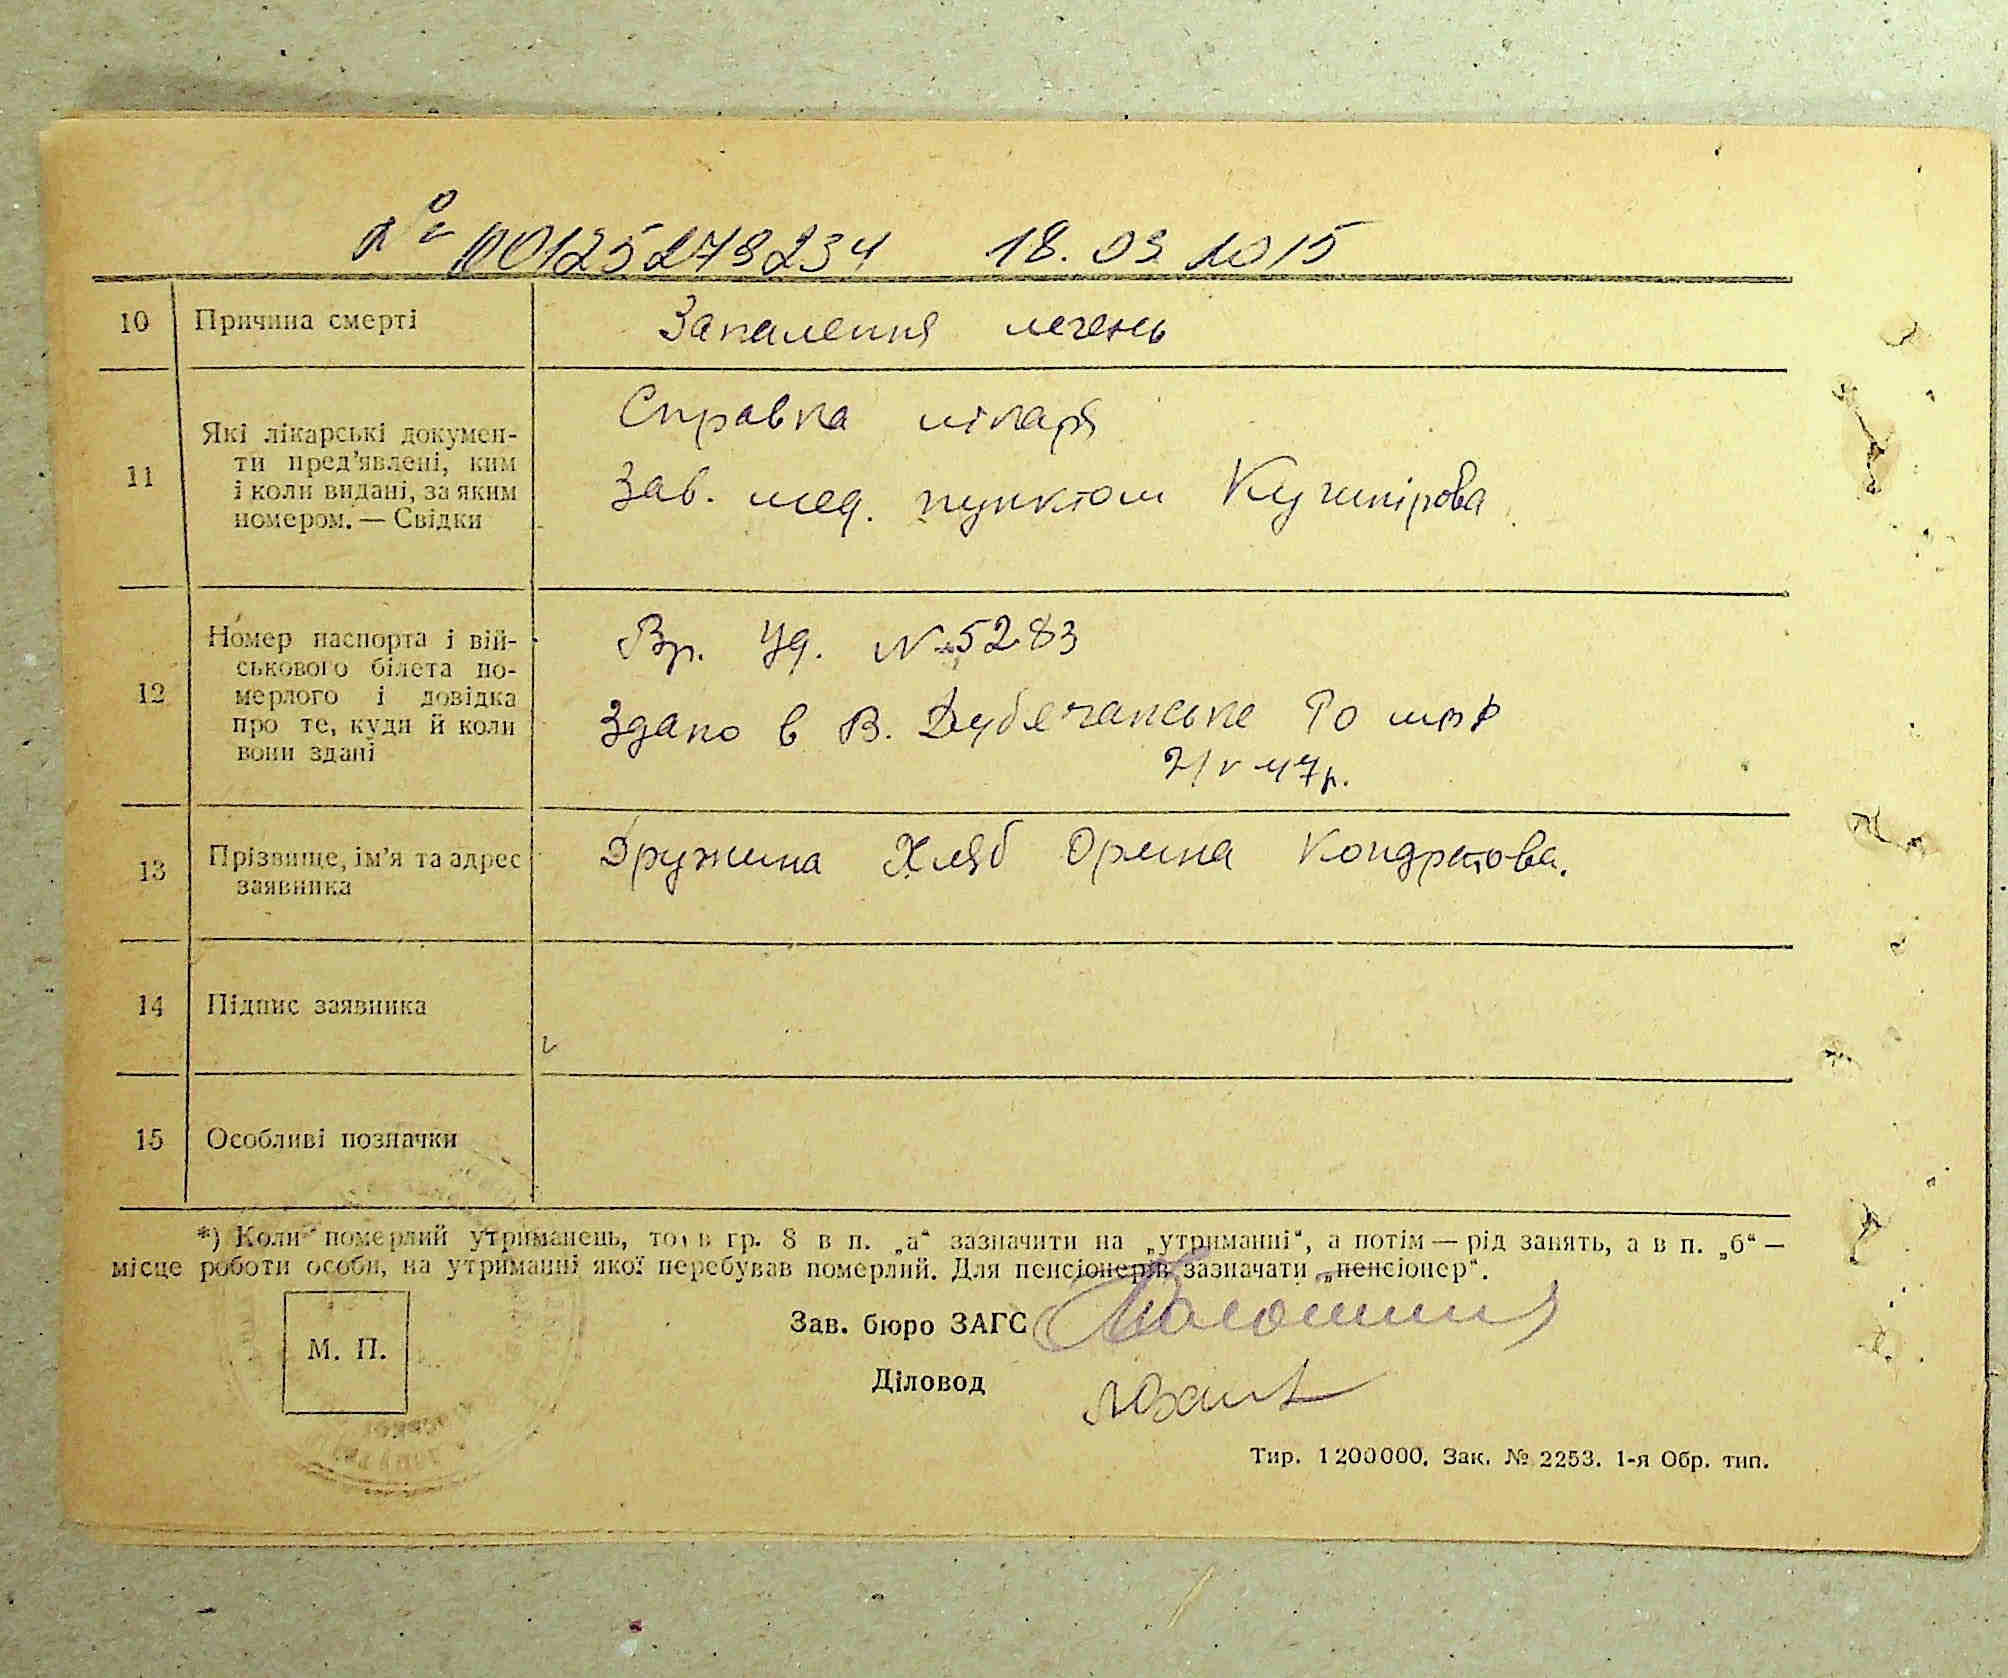 № 00125279234 18.09.2015
10 Причина смерті Запалення легень
11 Які лікарські докумен-
ти пред'явлені, ким
і коли видані, за яким
номером. — Свідки
Справка лікаря
Зав. мед. пунктом Кушнірова
12 Номер паспорта і вій-
ськового білета по-
мерлого і довідка
про те, куди й коли
вони здані
Вр. Уд. № 5283
Здано в В. Дубечанське Ро
2/V 47р.
13 Прізвище, ім'я та адрес
заявника
Дружина Хляб Орина Кондратова.
14 Підпис заявника
15 Особливі позначки
*) Коли померлий утриманець, то в гр. 8 в п. „а“ зазначити на „утриманні“, а потім — рід занять, а в п. „б“ —
місце роботи особи, на утриманні якої перебував померлий. Для пенсіонерів зазначати „пенсіонер“.
М. П.
Зав. бюро ЗАГС
Діловод
Тир. 1200000. Зак. № 2253. 1-я Обр. тип.